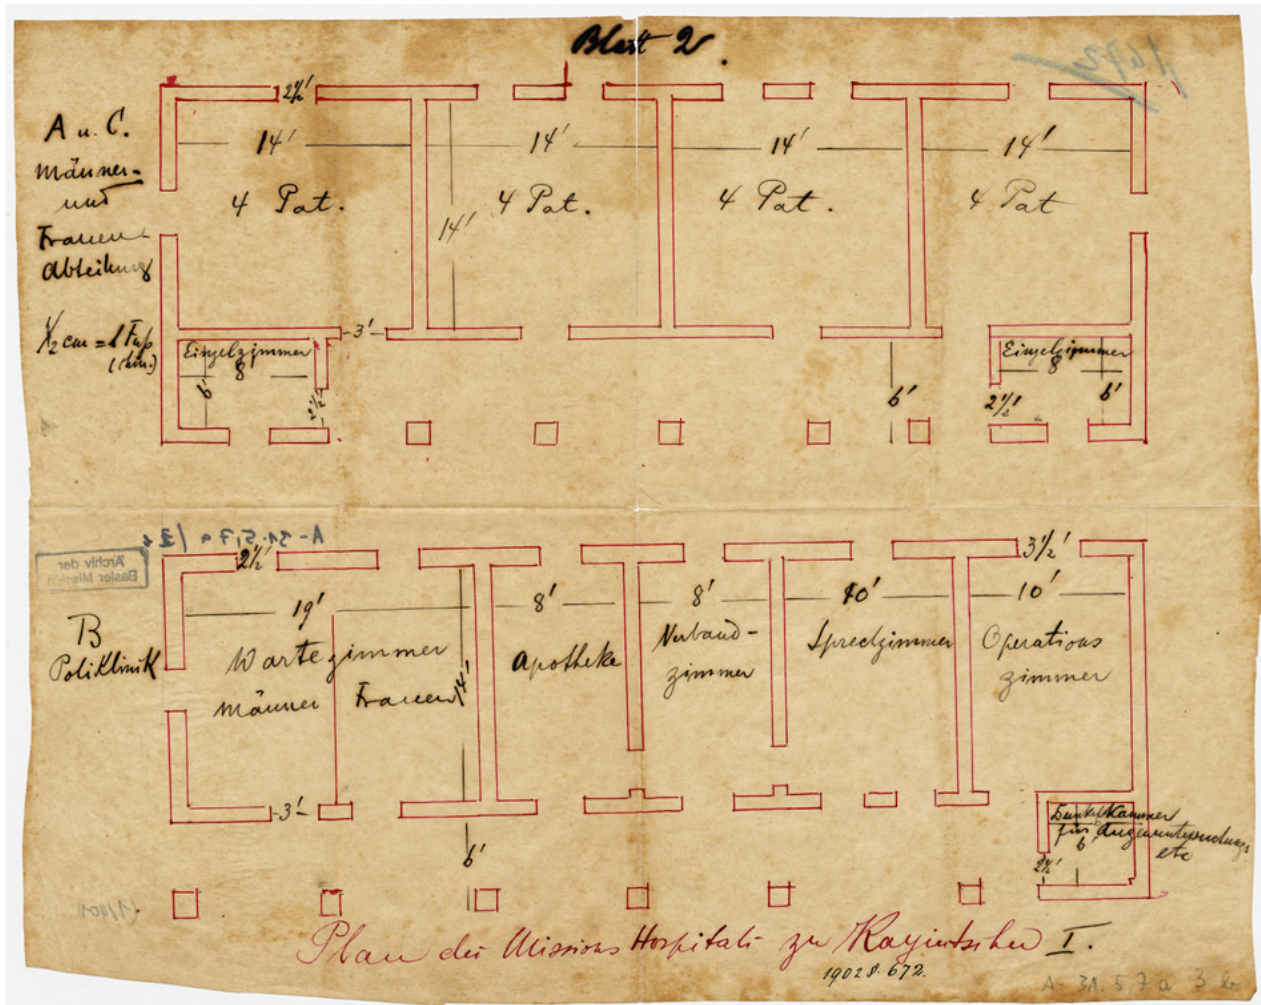 Blatt 2.
1672
A u. C.
Männer-
und
Frauen-
Abteilung
1/2 cm = 1 Fuß
(chin.)
2 1/2'
14' 14' 14' 14'
4 Pat. 4 Pat. 4 Pat. 4 Pat
14'
3'
Einzelzimmer Einzelzimmer
8 8
6' 2 1/2' 6' 2 1/2' 6'
A-31.5,7a/3
Archiv der
Basler Mission
2 1/2' 3 1/2'
19' 8' 8' 10' 10'
B
Poliklinik
Wartezimmer
Männer Frauen
14'
Apotheke
Verband-
zimmer
Sprechzimmer
Operations
zimmer
3'
6'
Dunkelkammer
für Augenuntersuchungs
6'
etc
2 1/2'
Plan des Missions Hospitals zu Kayintschu I.
1902 d. 672.
A-31.5,7a 3